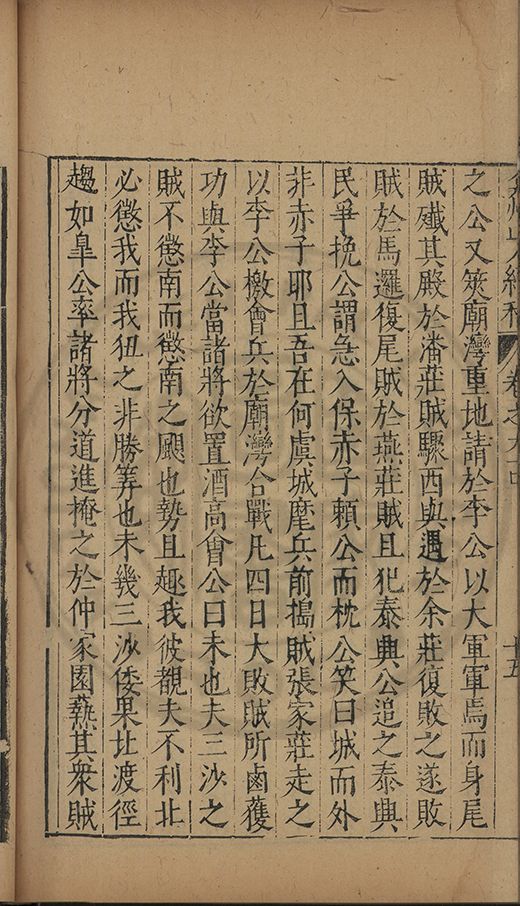 弇州山人續稿 卷之九十四 十五
之公又筴廟灣重地請於李公以大軍軍焉而身尾
賊殲其殿於潘莊賊驟西與遇於余莊復敗之遂敗
賊於馬邏復尾賊於燕莊賊且犯泰興公追之泰興
民爭挽公謂急入保赤子頼公而枕公笑曰城而外
非赤子耶且吾在何虞城麾兵前搗賊張家莊走之
以李公檄會兵於廟灣合戰凡四日大敗賊所鹵獲
功與李公當諸將欲置酒高會公曰未也夫三沙之
賊不懲南而懲南之颶也勢且趣我彼覩夫不利北
必懲我而我狃之非勝筭也未幾三沙倭果北渡徑
趨如皐公率諸將分道進掩之於仲家園爇其衆賊